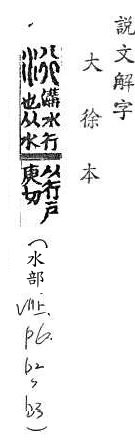 說文解字
大徐本
洐 溝水行
也从水
从行戶
庚切
(水部. VIII. p6. b2~b3)